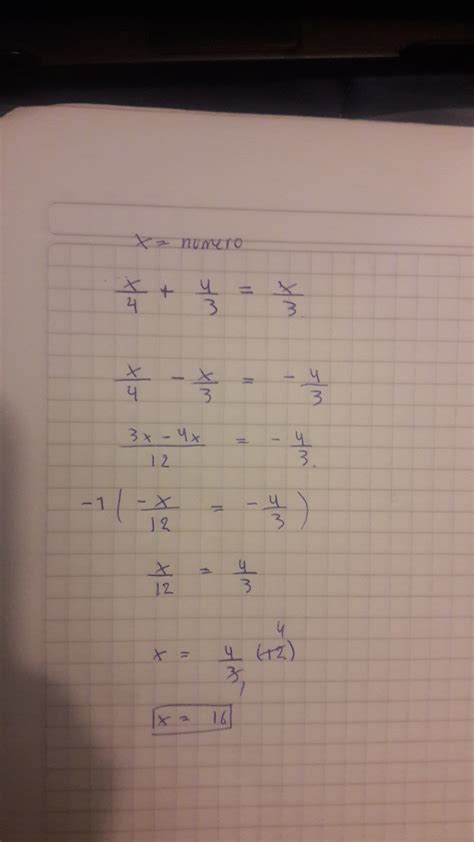 x = numero
x/4 + 4/3 = x/3.
x/4 - x/3 = - 4/3
3x - 4x/12 = - 4/3.
-1 ( -x/12 = - 4/3 )
x/12 = 4/3
x = 4/3 (12) 4 1
x = 16